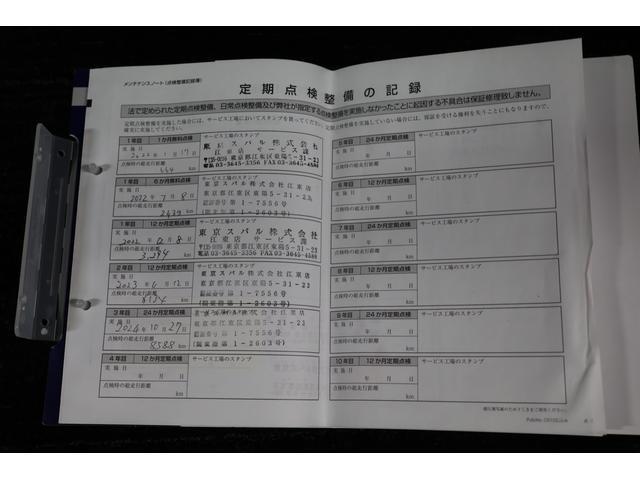 メンテナンスノート(点検整備記録簿)
定期点検整備の記録
法で定められた定期点検整備、日常点検整備及び弊社が指定する点検整備を実施しなかったことに起因する不具合は保証修理致しません。
定期点検整備を実施した場合には、サービス工場においてスタンプを貰ってください。定期点検整備を実施していない場合には、保証を受ける権利を失うことにもなりますので、
確実に実施してください。
1年目 1か月無料点検
サービス工場のスタンプ
実施日
2022年1月17日
点検時の総走行距離
km
東京スバル株式会社
江東店 サービス課
〒135-0016 東京都江東区東陽5-31-23
☎03-3645-3356 FAX03-3645-4586
1年目 6か月無料点検
サービス工場のスタンプ
実施日
2022年7月8日
点検時の総走行距離
km
東京スバル株式会社江東店
東京都江東区東陽5-31-23
認証番号第1-7556号
(指定番号第1-2603号)
1年目 12か月定期点検
サービス工場のスタンプ
実施日
2022年12月8日
点検時の総走行距離
3,284 km
東京スバル株式会社
江東店 サービス課
〒135-0016 東京都江東区東陽5-31-23
☎03-3645-3356 FAX03-3645-4586
2年目 12か月定期点検
サービス工場のスタンプ
実施日
点検時の総走行距離
km
東京スバル株式会社江東店
東京都江東区東陽5-31-23
認証番号第1-7556号
3年目 24か月定期点検
サービス工場のスタンプ
実施日
2024年10月27日
点検時の総走行距離
8588 km
東京都江東区東陽5-31-23
認証番号第1-7556号
4年目 12か月定期点検
サービス工場のスタンプ
実施日
年 月 日
点検時の総走行距離
km
5年目 24か月定期点検
サービス工場のスタンプ
実施日
年 月 日
点検時の総走行距離
km
6年目 12か月定期点検
サービス工場のスタンプ
実施日
年 月 日
点検時の総走行距離
km
7年目 24か月定期点検
サービス工場のスタンプ
実施日
年 月 日
点検時の総走行距離
km
8年目 12か月定期点検
サービス工場のスタンプ
実施日
年 月 日
点検時の総走行距離
km
9年目 24か月定期点検
サービス工場のスタンプ
実施日
年 月 日
点検時の総走行距離
km
10年目 12か月定期点検
サービス工場のスタンプ
実施日
年 月 日
点検時の総走行距離
km